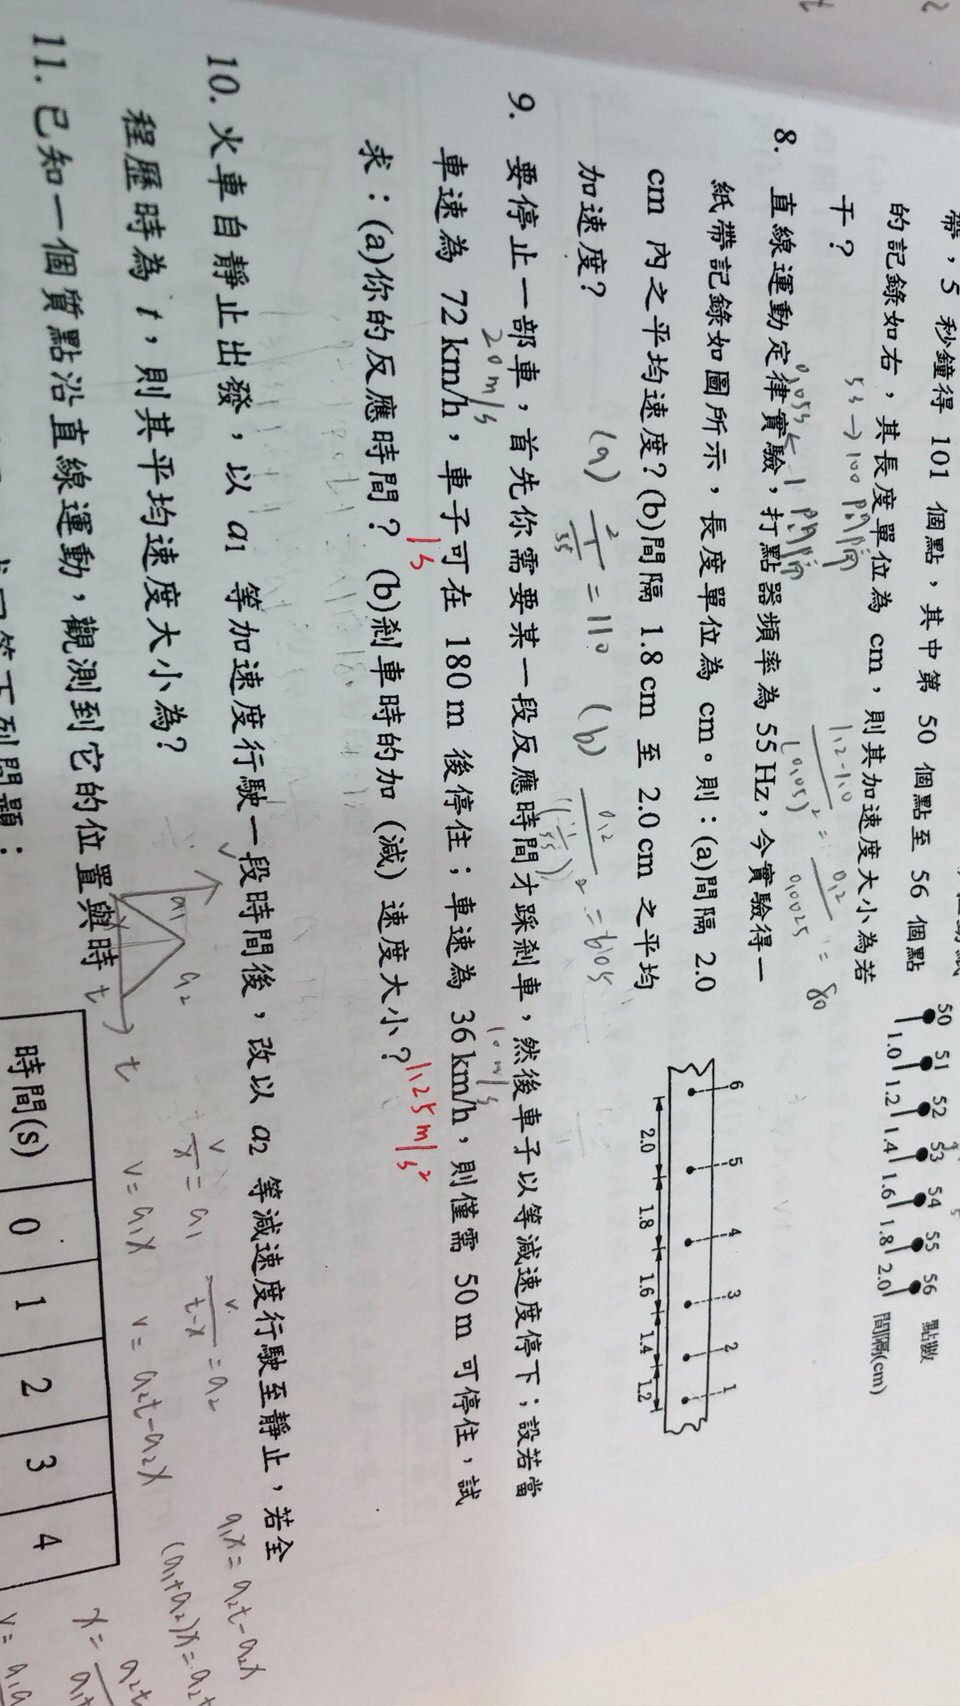 帶，5 秒鐘得 101 個點，其中第 50 個點至 56 個點
的記錄如右，其長度單位為 cm，則其加速度大小為若
干？
5s→100
1.2-1.0
(0.05)² = 0.2
0.0025 = 80
50 51 52 53 54 55 56 點數
1.0 1.2 1.4 1.6 1.8 2.0 間隔(cm)
8. 直線運動定律實驗，打點器頻率為 55 Hz，今實驗得一
紙帶記錄如圖所示，長度單位為 cm。則：(a)間隔 2.0
cm 內之平均速度？(b)間隔 1.8 cm 至 2.0 cm 之平均
加速度？
(a) 2
1
55 = 110
(b) 0.2
(1/55)² = 605
6 5 4 3 2 1
2.0 1.8 1.6 1.4 1.2
9. 要停止一部車，首先你需要某一段反應時間才踩剎車，然後車子以等減速度停下；設若當
20m/s
10m/s
車速為 72 km/h，車子可在 180 m 後停住；車速為 36 km/h，則僅需 50 m 可停住，試
1s
1.25m/s²
求：(a)你的反應時間？(b)剎車時的加（減）速度大小？
10. 火車自靜止出發，以 a1 等加速度行駛一段時間後，改以 a2 等減速度行駛至靜止，若全
程歷時為 t，則其平均速度大小為？
a1 a2 t
v/x = a1
v/t-x = a2
v = a1x
v = a2t-a2x
a1x = a2t-a2x
(a1+a2)x = a2t
x = a2t
11. 已知一個質點沿直線運動，觀測到它的位置與時
時間(s) 0 1 2 3 4